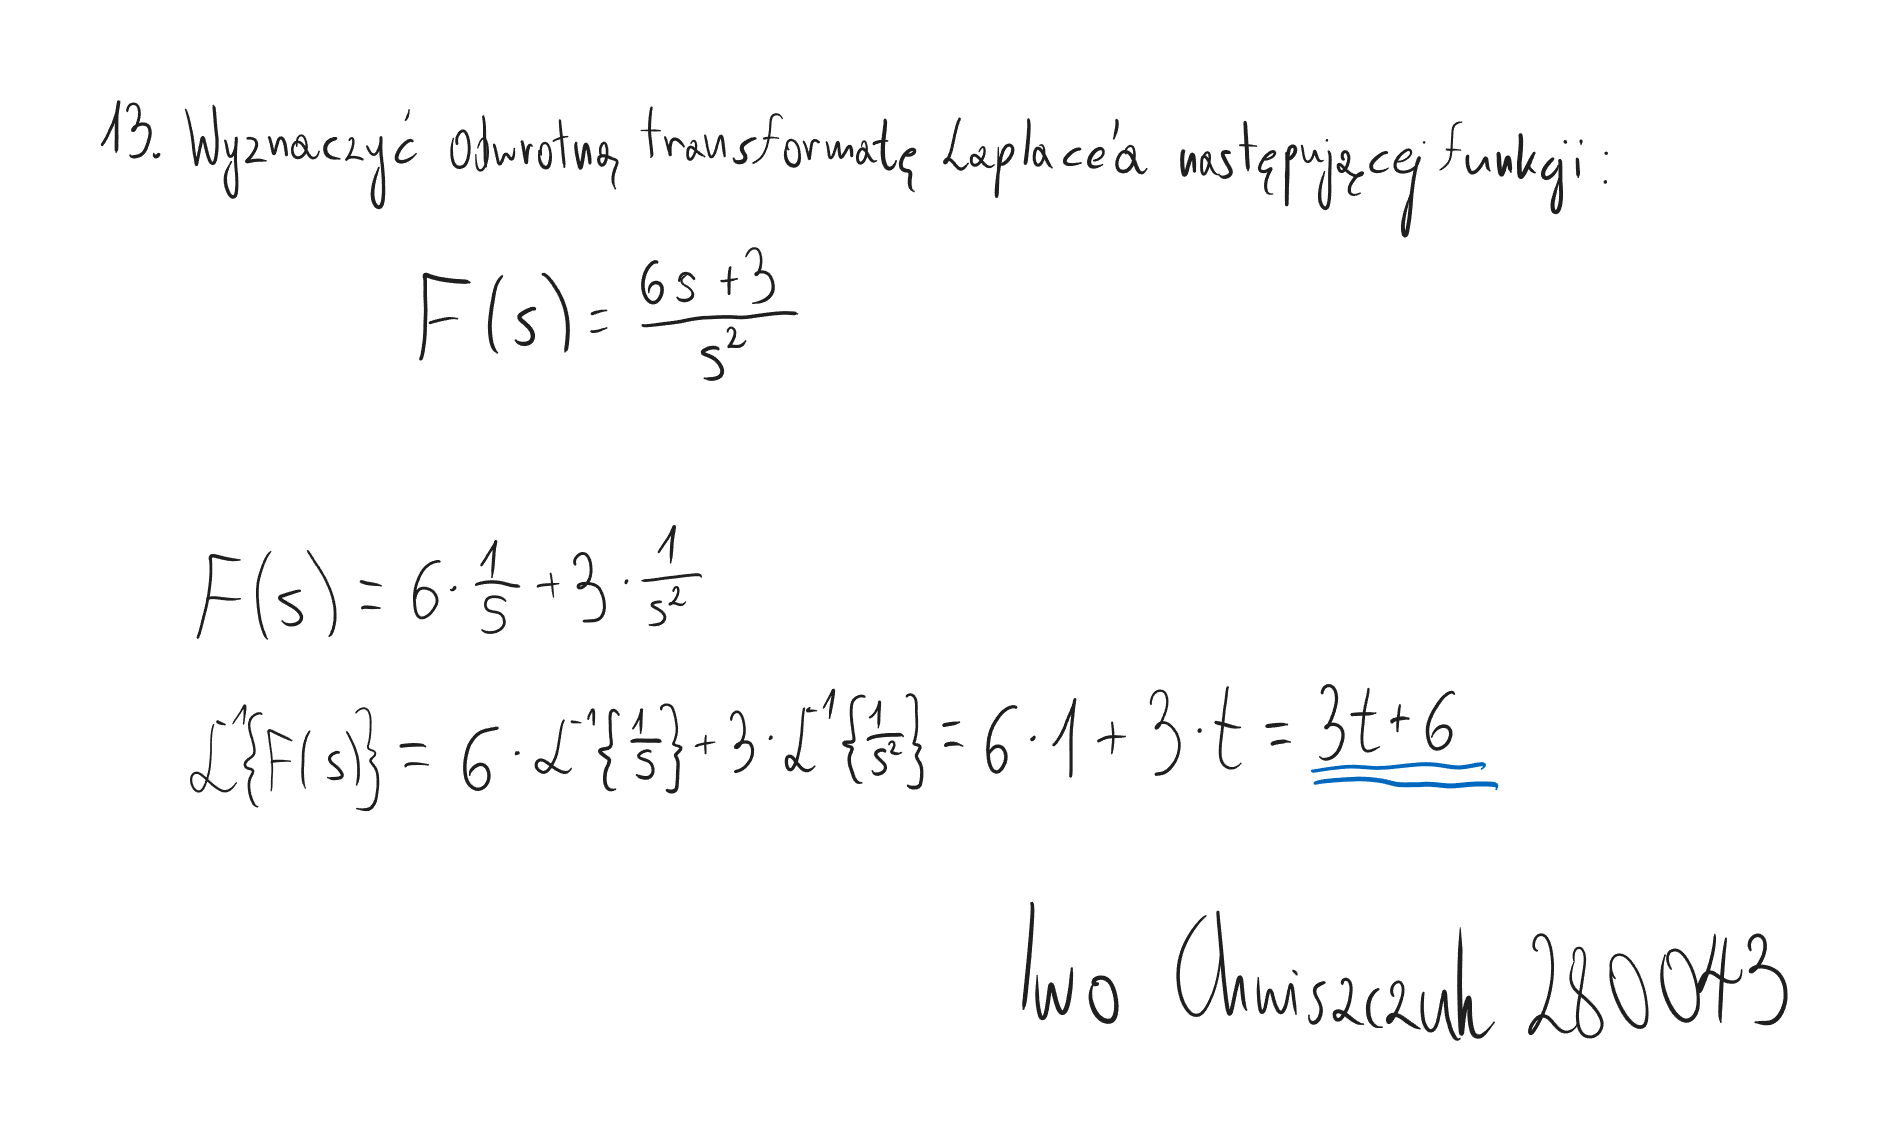 13. Wyznaczyć odwrotną transformatę Laplace'a następującej funkcji:
F(s) = \frac{6s+3}{s^2}
F(s) = 6 · \frac{1}{s} + 3 · \frac{1}{s^2}
ℒ^{-1}{F(s)} = 6 · ℒ^{-1}{\frac{1}{s}} + 3 · ℒ^{-1}{\frac{1}{s^2}} = 6 · 1 + 3 · t = 3t + 6
Iwo Chwiszczuk 280043